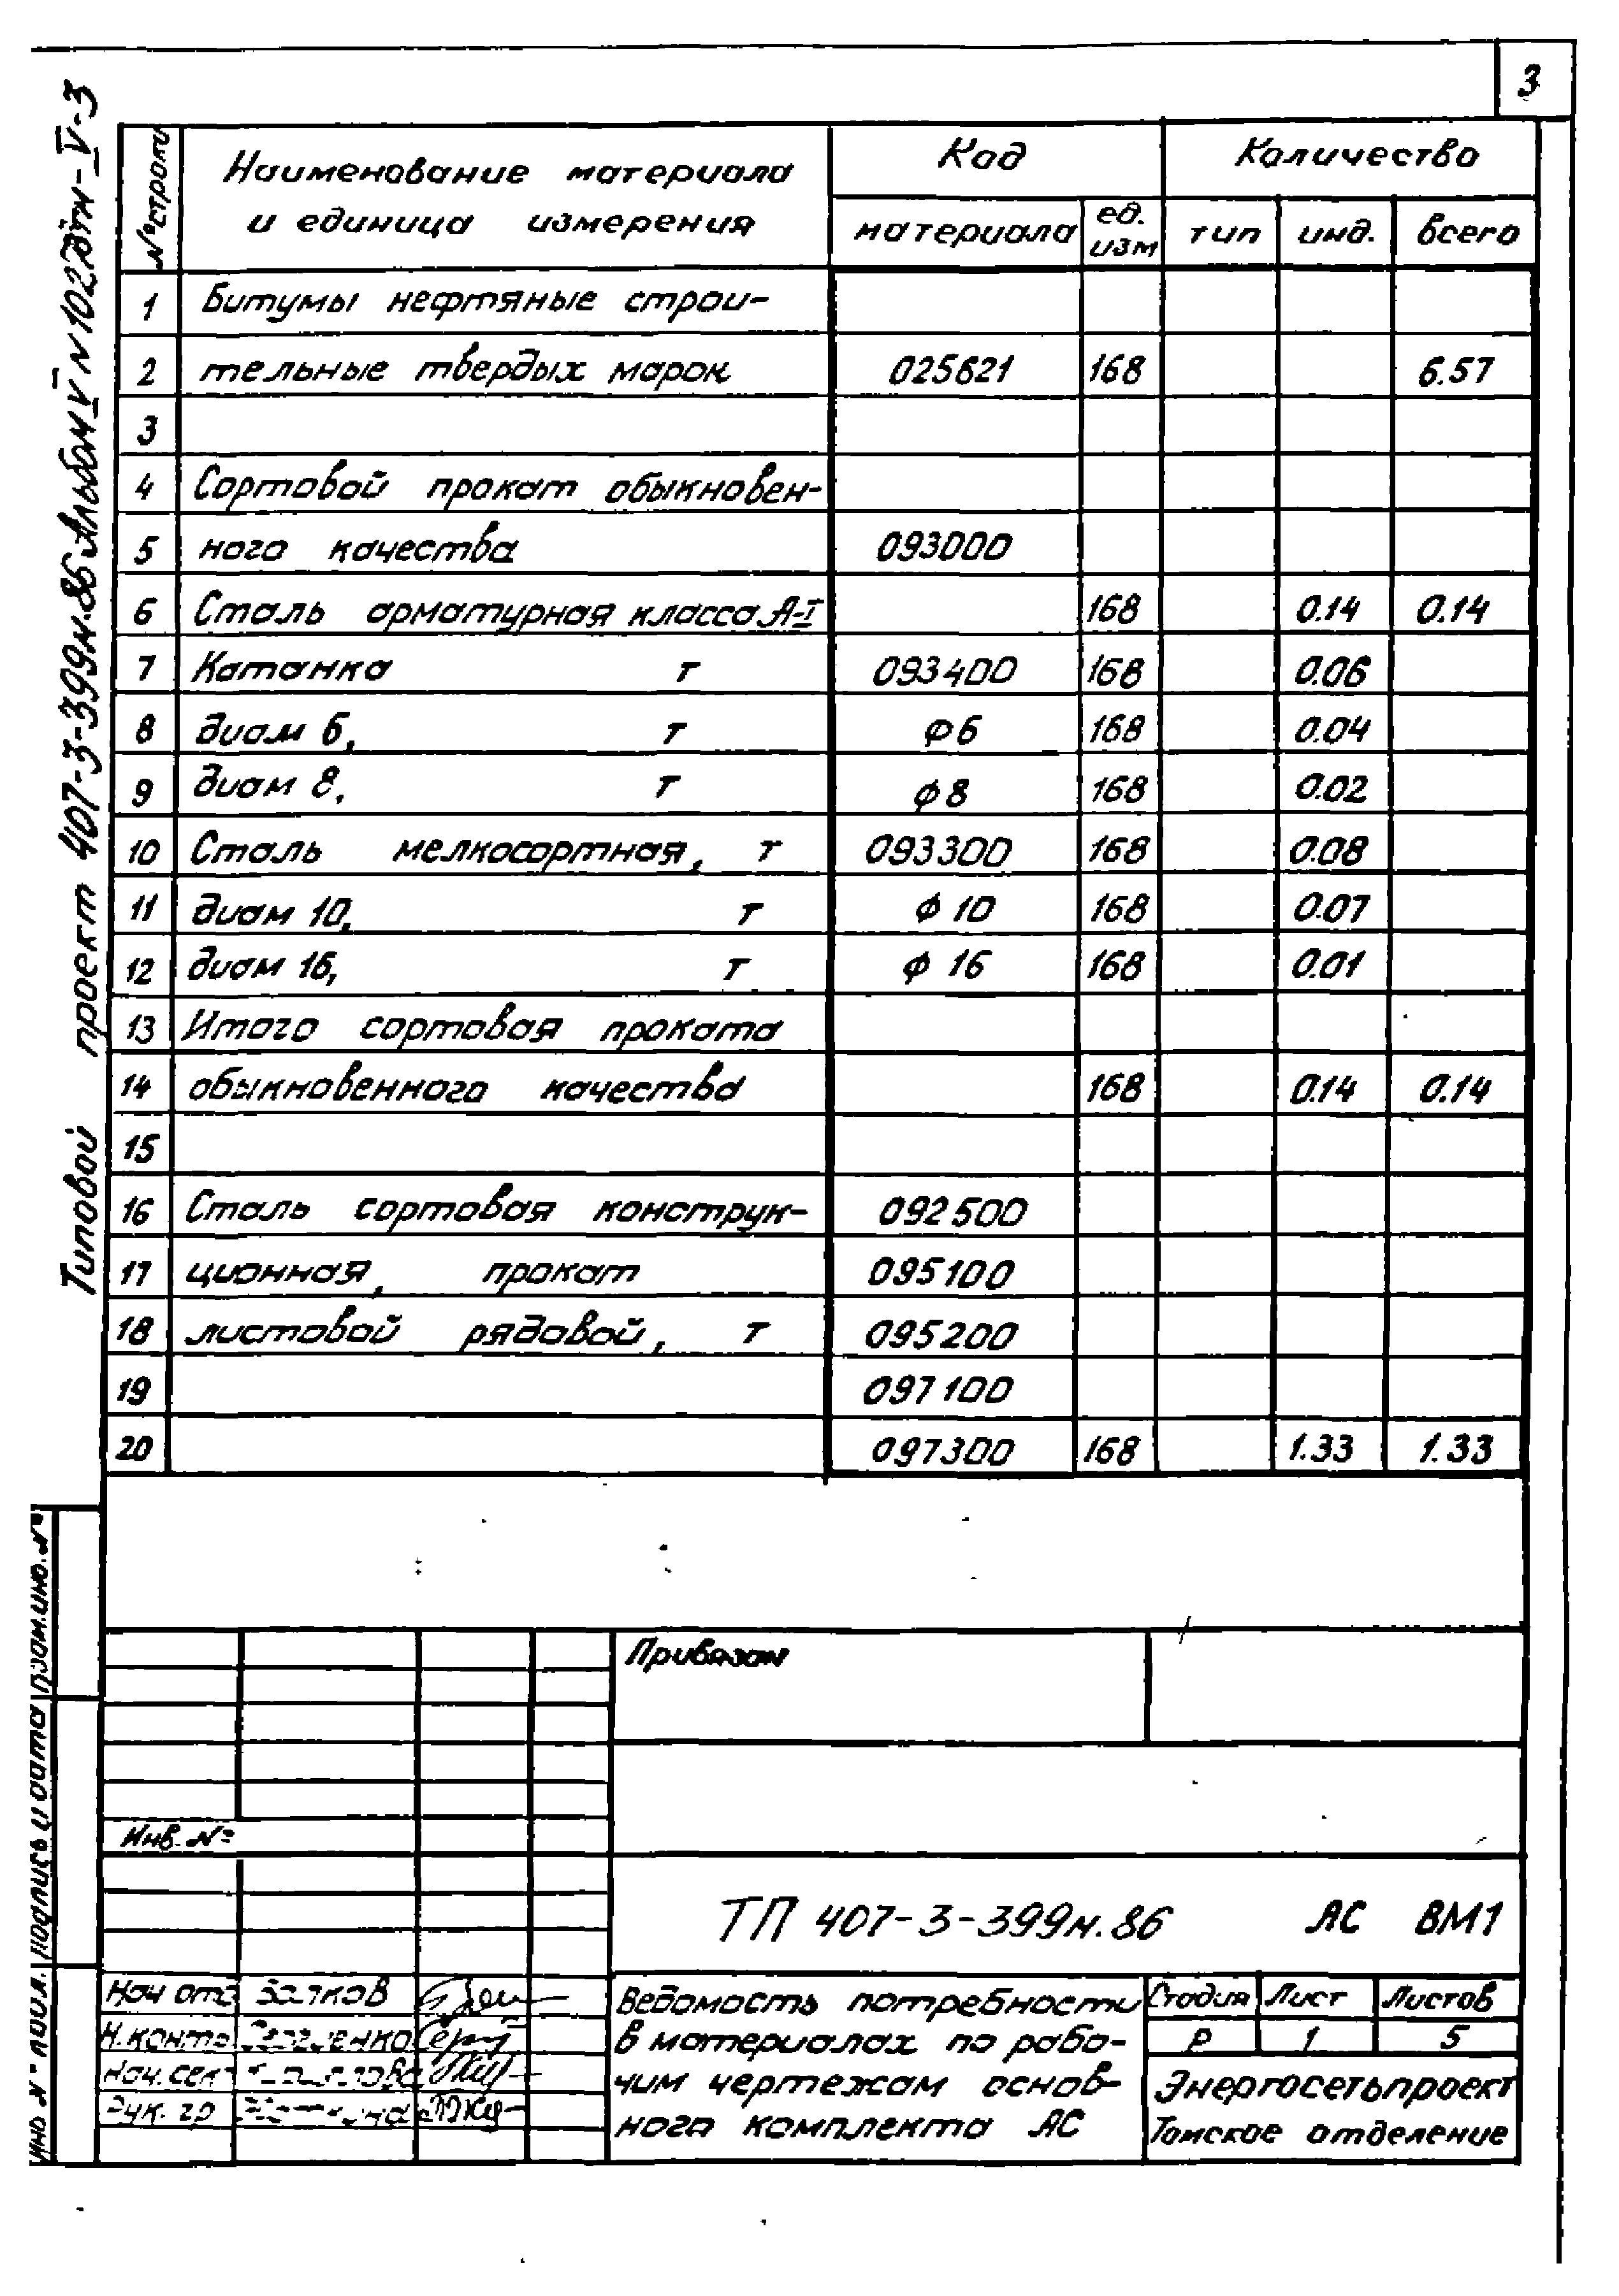 3
Типовой проект 407-3-399м.86 Альбом V
№ строки
Наименование материала
и единица измерения
Код
Количество
материала
ед.
изм
тип
инд.
всего
1 Битумы нефтяные строи-
2 тельные твердых марок 025621 168 6.57
3
4 Сортовой прокат обыкновен-
5 ного качества 093000
6 Сталь арматурная класса А-I 168 0.14 0.14
7 Катанка т 093400 168 0.06
8 диам 6, т ф6 168 0.04
9 диам 8, т ф8 168 0.02
10 Сталь мелкосортная, т 093300 168 0.08
11 диам 10, т ф 10 168 0.07
12 диам 16, т ф 16 168 0.01
13 Итого сортовая проката
14 обыкновенного качества 168 0.14 0.14
15
16 Сталь сортовая конструк- 092500
17 ционная, прокат 095100
18 листовой рядовой, т 095200
19 097100
20 097300 168 1.33 1.33
Привязан
Инв. №
ТП 407-3-399м.86 АС ВМ1
Нач отд
Н.контр
Нач. сект
Рук. гр
Ведомость потребности
в материалах по рабо-
чим чертежам основ-
ного комплекта АС
Стадия Лист Листов
Р 1 5
Энергосетьпроект
Томское отделение
подпись и дата